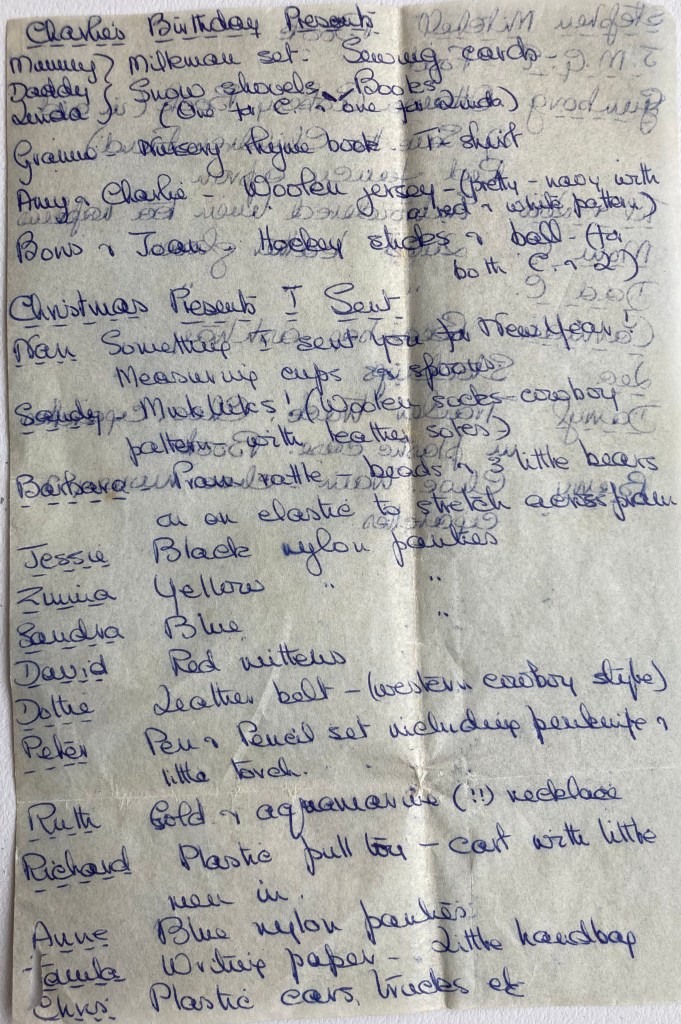 Charlie's Birthday Presents
Mummy } Milkman set. Sewing cards -
Daddy } Snow shovels Books
Linda } (One for C. & one for Linda)
Grannie Nursery Rhyme book T-shirt
Amy & Charlie - Woolen jersey - (pretty - navy with
a red & white pattern)
Bows & Joan Hockey sticks & ball - (for
both C. & L.)
Christmas Presents I Sent
Nan Something I sent you for New Year!
Measuring cups spoons
Sandy Mukluks! (Woolen socks - cowboy
pattern - with leather soles)
Barbara Pram rattle - beads & 3 little bears
on an elastic to stretch across pram
Jessie Black nylon panties
Yellow " "
Sandra Blue "
David Red mittens
Dottie Leather belt - (western cowboy style)
Peter Pen & Pencil set including penknife &
little torch.
Ruth Gold & aquamarine (!!) necklace
Richard Plastic pull toy - cart with little
men in.
Anne Blue nylon panties
Writing paper - Little handbag
Chris Plastic cars, trucks etc